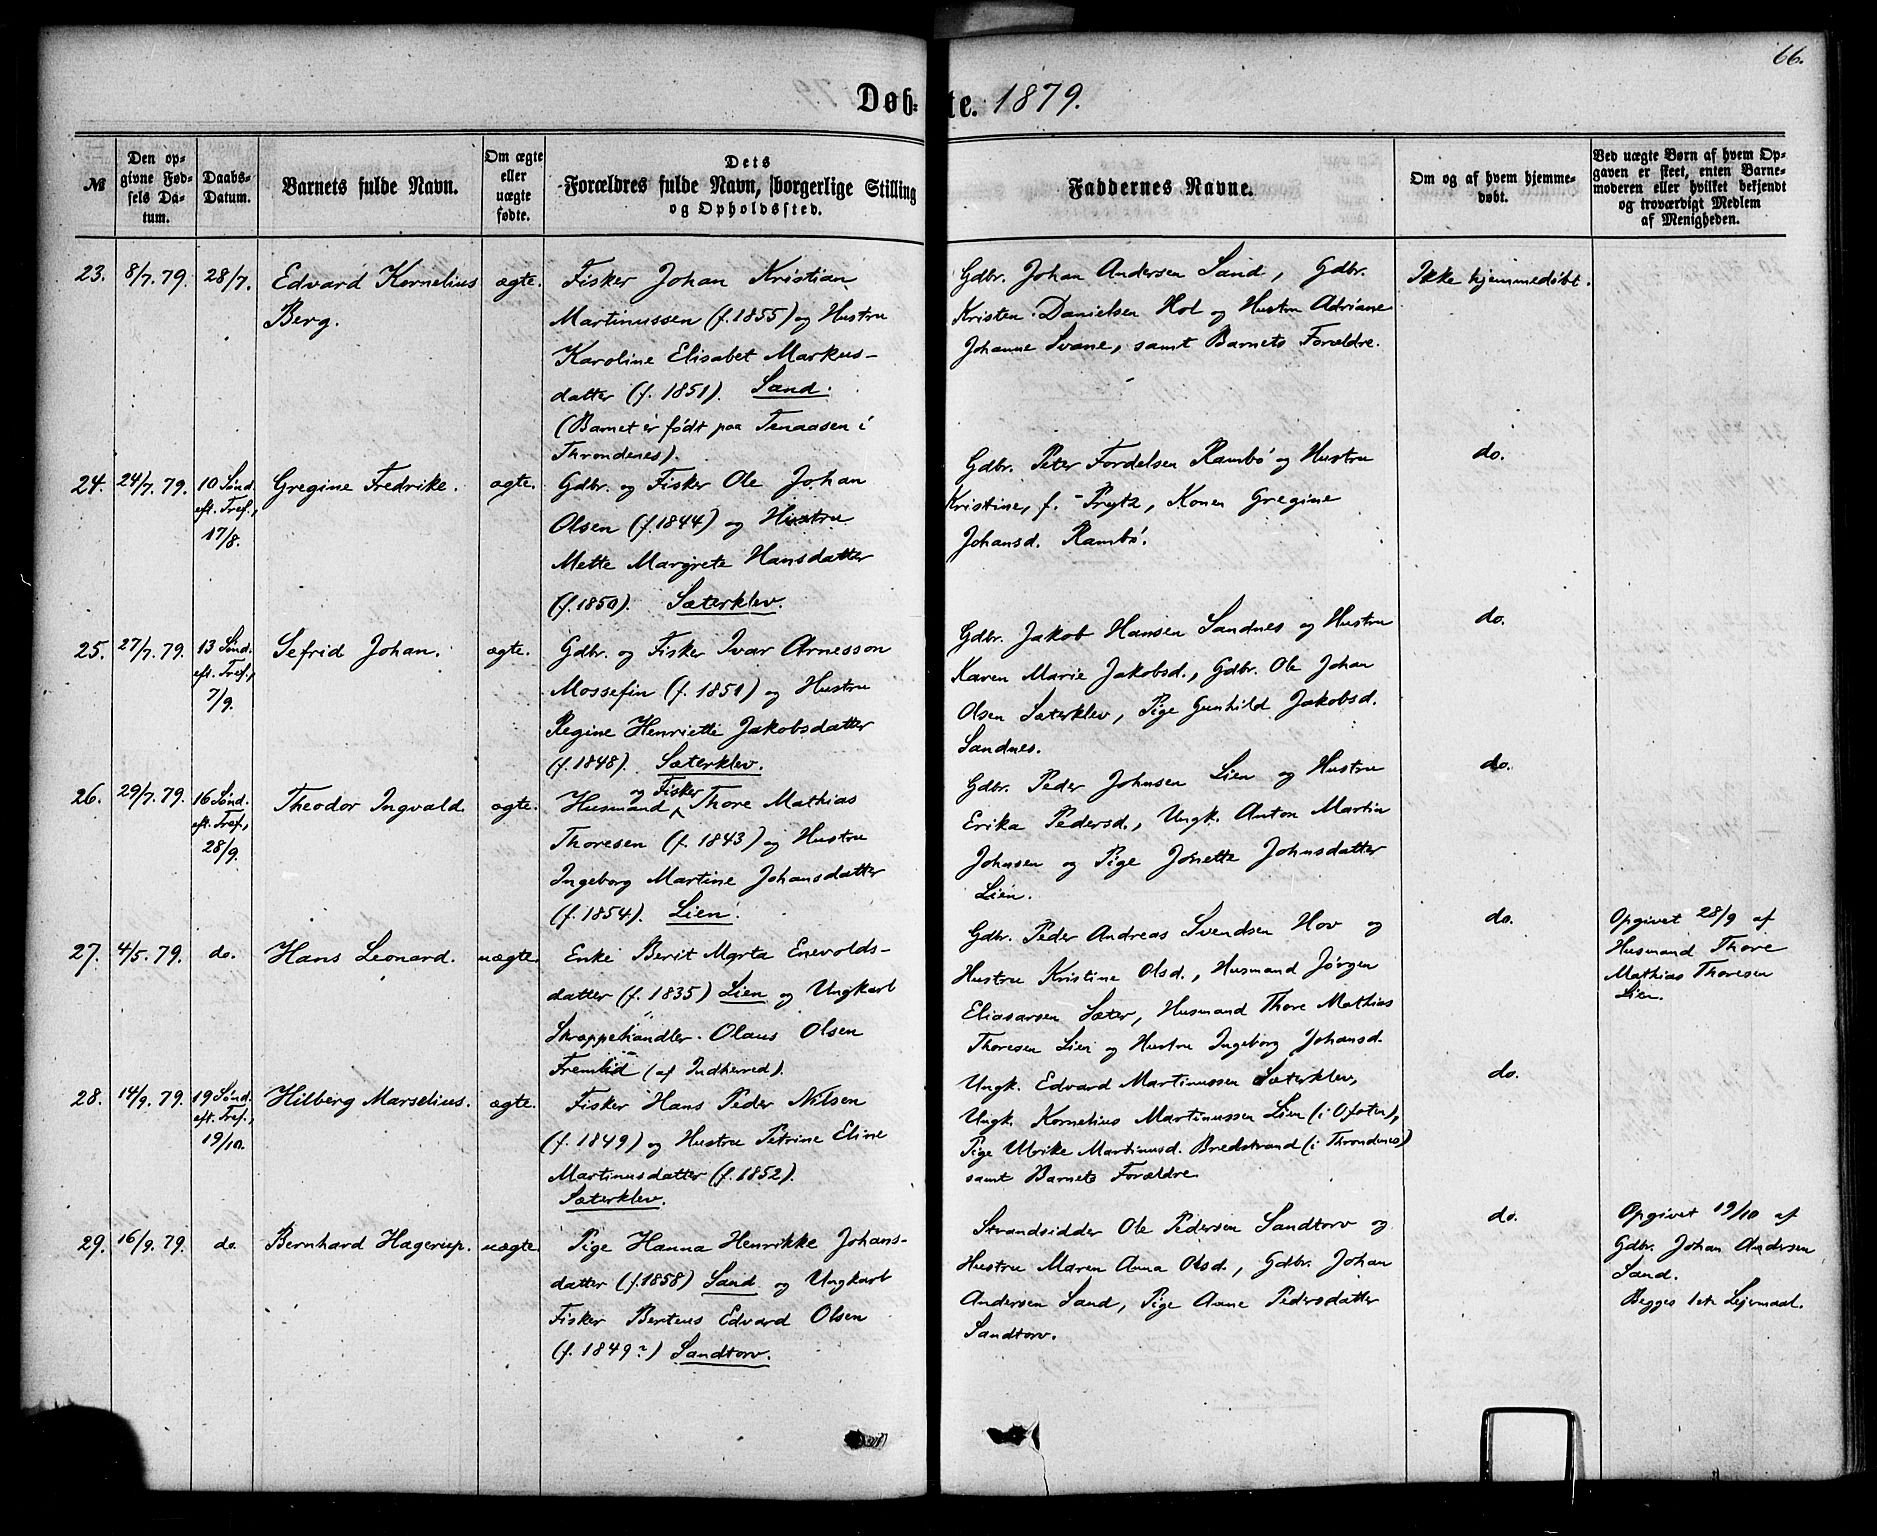 66.
Døb- te. 1879.
№
Den op-
givne Fød-
sels Da-
tum.
Daabs-
Datum.
Barnets fulde Navn.
Om ægte
eller
uægte
fødte.
Dets
Forældres fulde Navn, borgerlige Stilling
og Opholdssted.
Faddernes Navne.
Om og af hvem hjemme-
døbt.
Ved uægte Børn af hvem Op-
gaven er skeet, enten Barne-
moderen eller hvilket bekjendt
og troværdigt Medlem
af Menigheden.
23.
8/7. 79.
28/7.
Edvard Kornelius
Berg.
ægte.
Fisker Johan Kristian
Martinussen (f. 1855) og Hustru
Karoline Elisabet Markus-
datter (f. 1851). Sand.
(Barnet er født paa Tenaasen i
Throndenes).
Gdbr. Johan Andersen Sand, Gdbr.
Kristen Danielsen Hol og Hustru Adriane
Johanne Svane, samt Barnets Forældre.
Ikke hjemmedøbt.
24.
24/7. 79.
10 Sønd.
eft. Tref.,
17/8.
Gregine Fredrike.
ægte.
Gdbr. og Fisker Ole Johan
Olsen (f. 1844) og Hustru
Mette Margrete Hansdatter
(f. 1850). Sæterklev.
Gdbr. Peter Fordelsen Rambø og Hustru
Kristine, f. Prytz, Konen Gregine
Johansd. Rambø.
do.
25.
27/7. 79.
13 Sønd.
eft. Tref.,
7/9.
Sefrid Johan.
ægte.
Gdbr. og Fisker Ivar Arnesson
Mossefin (f. 1851) og Hustru
Regine Henriette Jakobsdatter
(f. 1848). Sæterklev.
Gdbr. Jakob Hansen Sandnes og Hustru
Karen Marie Jakobsd., Gdbr. Ole Johan
Olsen Sæterklev, Pige Gunhild Jakobsd.
Sandnes.
do.
26.
29/7. 79.
16 Sønd.
eft. Tref.,
28/9.
Theodor Ingvald
ægte.
og Fisker
Husmand Thore Mathias
Thoresen (f. 1843) og Hustru
Ingeborg Martine Johansdatter
(f. 1854). Lien.
Gdbr. Peder Johnsen Lien og Hustru
Erika Pedersd., Ungk. Anton Martin
Johnsen og Pige Jonette Johnsdatter
Lien.
do.
27.
4/5. 79.
do.
Hans Leonard.
uægte.
Enke Berit Marta Enevolds-
datter (f. 1835) Lien og Ungkarl
Skræppehandler Olaus Olsen
Fremlid (af Indherred).
Gdbr. Peder Andreas Svendsen Hov og
Hustru Kristine Olsd., Husmand Jørgen
Eliasarsen Sæter, Husmand Thore Mathias
Thoresen Lien og Hustru Ingeborg Johansd.
do.
Opgivet 28/9 af
Husmand Thore
Mathias Thoresen
Lien.
28.
14/9. 79.
19 Sønd.
eft. Tref.,
19/10.
Hilberg Marselius.
ægte.
Fisker Hans Peder Nilsen
(f. 1849) og Hustru Petrine Eline
Martinusdatter (f. 1852).
Sæterklev.
Ungk. Edvard Martinussen Sæterklev,
Ungk. Kornelius Martinussen Lien (i Ofoten),
Pige Ulrike Martinusd. Bredstrand (i Throndenes)
samt Barnets Forældre
do.
29.
16/9. 79.
do.
Bernhard Hagerup.
uægte.
Pige Hanna Henrikke Johans-
datter (f. 1858) Sand og Ungkarl
Fisker Berteus Edvard Olsen
(f. 1849?) Sandtorv.
Strandsidder Ole Pedersen Sandtorv og
Hustru Maren Anna Olsd., Gdbr. Johan
Andersen Sand, Pige Anne Pedersdatter
Sandtorv.
do.
Opgivet 19/10 af
Gdbr. Johan Andersen
Sand.
Begges 1ste Lejermaal.